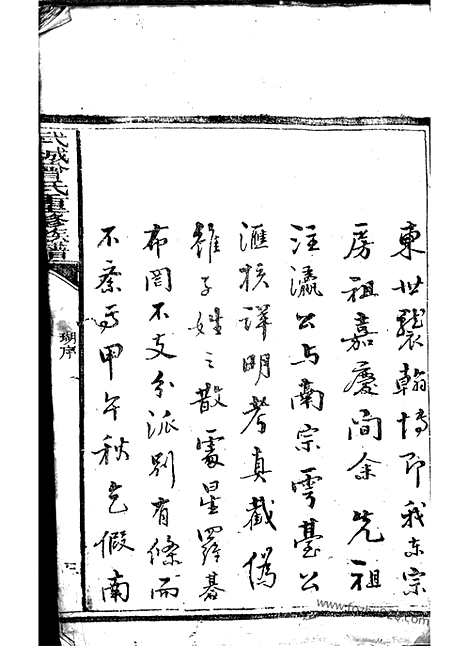 東世襲翰博即我東宗
房祖嘉慶間余先祖
注瀛公与南宗雲臺公
滙核詳明考真截偽
雖子姓之散處星羅碁
布罔不支分派別有條而
不紊焉甲午秋乞假南
武城曾氏重修族譜
瑚序